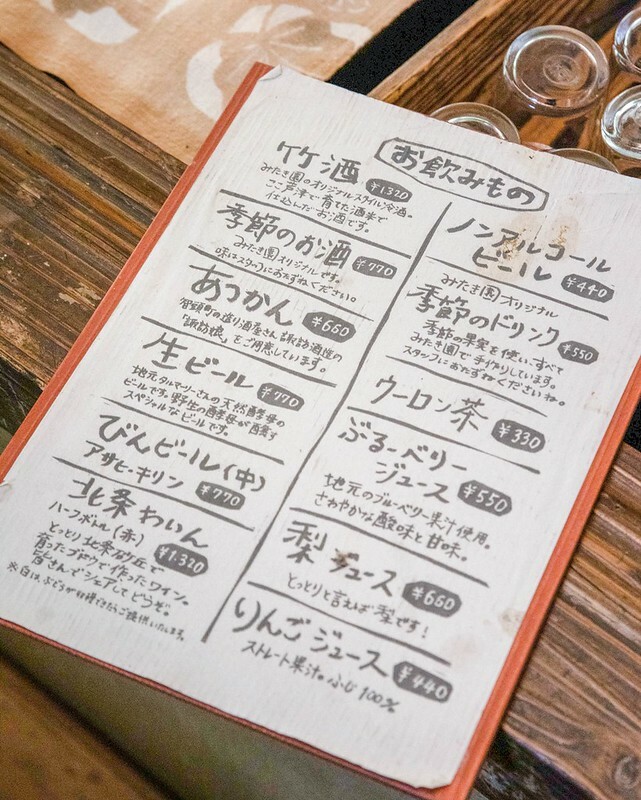 お飲みもの
竹酒 ¥1320
みたき園のオリジナルスタイル冷酒。
ここ芦津で育てた酒米で
仕込んだお酒です。
季節のお酒 ¥770
みたき園オリジナルです。
味はスタッフにおたずねください。
あつかん ¥660
智頭町の造り酒屋さん 諏訪酒造の
「諏訪娘」をご用意しています。
生ビール ¥770
地元タルマリーさんの天然酵母の
ビールです。野生の酵母が醸す
スペシャルなビールです。
びんビール(中)
アサヒ・キリン ¥770
北条わいん
ハーフボトル(赤) ¥1.320
とっとり北条砂丘で
育ったブドウで作ったワイン。
皆さんでシェアしてどうぞ。
※白は、ぶどうが収穫できたらご提供いたします。
ノンアルコール
ビール ¥440
みたき園オリジナル
季節のドリンク ¥550
季節の果実を使い、すべて
みたき園で手作りしています。
スタッフにおたずねくださいね。
ウーロン茶 ¥330
ぶるーべリー
ジュース ¥550
地元のブルーベリー果汁使用。
さわやかな酸味と甘味。
梨ジュース ¥660
とっとりと言えば梨です!
りんごジュース ¥440
ストレート果汁。ふじ100%